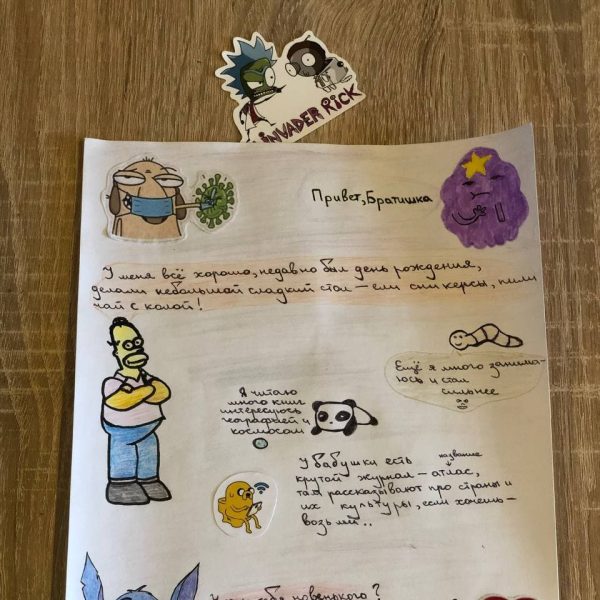 INVADER RICK
Привет, Братишка
У меня всё хорошо, недавно был день рождения,
делали небольшой сладкий стол – ели сникерсы, пили
чай с колой!
Ещё я много занима-
юсь и стал
сильнее
Я читаю
много книг
интересуюсь
географией и
космосом
У бабушки есть название
крутой журнал – атлас,
там рассказывают про страны и
их культуры, если хочешь –
возьми..
новенького?